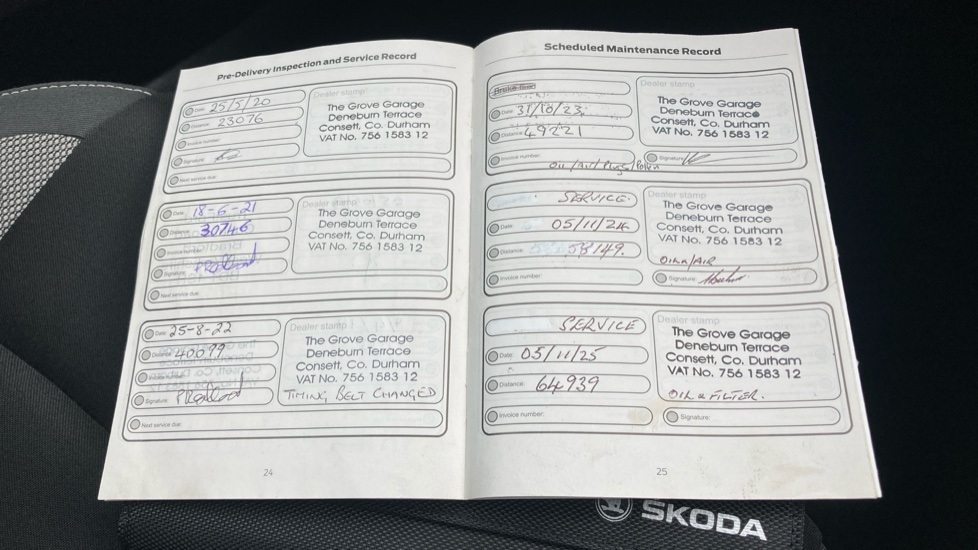 Pre-Delivery Inspection and Service Record
Date: 25/5/20
Distance: 23076
Invoice number:
Signature:
Next service due:
Dealer stamp
The Grove Garage
Deneburn Terrace
Consett, Co. Durham
VAT No. 756 1583 12
Date: 18-6-21
Distance: 30746
Invoice number:
Signature:
Next service due:
Dealer stamp
The Grove Garage
Deneburn Terrace
Consett, Co. Durham
VAT No. 756 1583 12
Date: 25-8-22
Distance: 40099
Invoice number:
Signature:
Next service due:
Dealer stamp
The Grove Garage
Deneburn Terrace
Consett, Co. Durham
VAT No. 756 1583 12
TIMING BELT CHANGED
24
Scheduled Maintenance Record
Date: 31/10/23
Distance: 49221
Invoice number:
Oil/Air/Plugs/Pollen
Dealer stamp
The Grove Garage
Deneburn Terrace
Consett, Co. Durham
VAT No. 756 1583 12
Signature:
SERVICE.
Date: 05/11/24
Distance: 58149.
Invoice number:
Dealer stamp
The Grove Garage
Deneburn Terrace
Consett, Co. Durham
VAT No. 756 1583 12
Signature:
SERVICE
Date: 05/11/25
Distance: 64939
Invoice number:
Dealer stamp
The Grove Garage
Deneburn Terrace
Consett, Co. Durham
VAT No. 756 1583 12
OIL & FILTER.
Signature:
25
SKODA